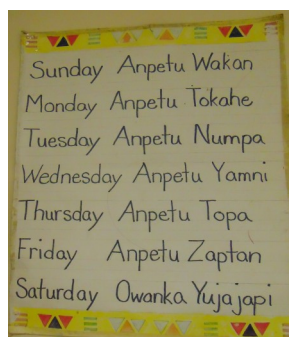 Sunday Anpetu Wakan
Monday Anpetu Tokahe
Tuesday Anpetu Numpa
Wednesday Anpetu Yamni
Thursday Anpetu Topa
Friday Anpetu Zaptan
Saturday Owanka Yujajapi